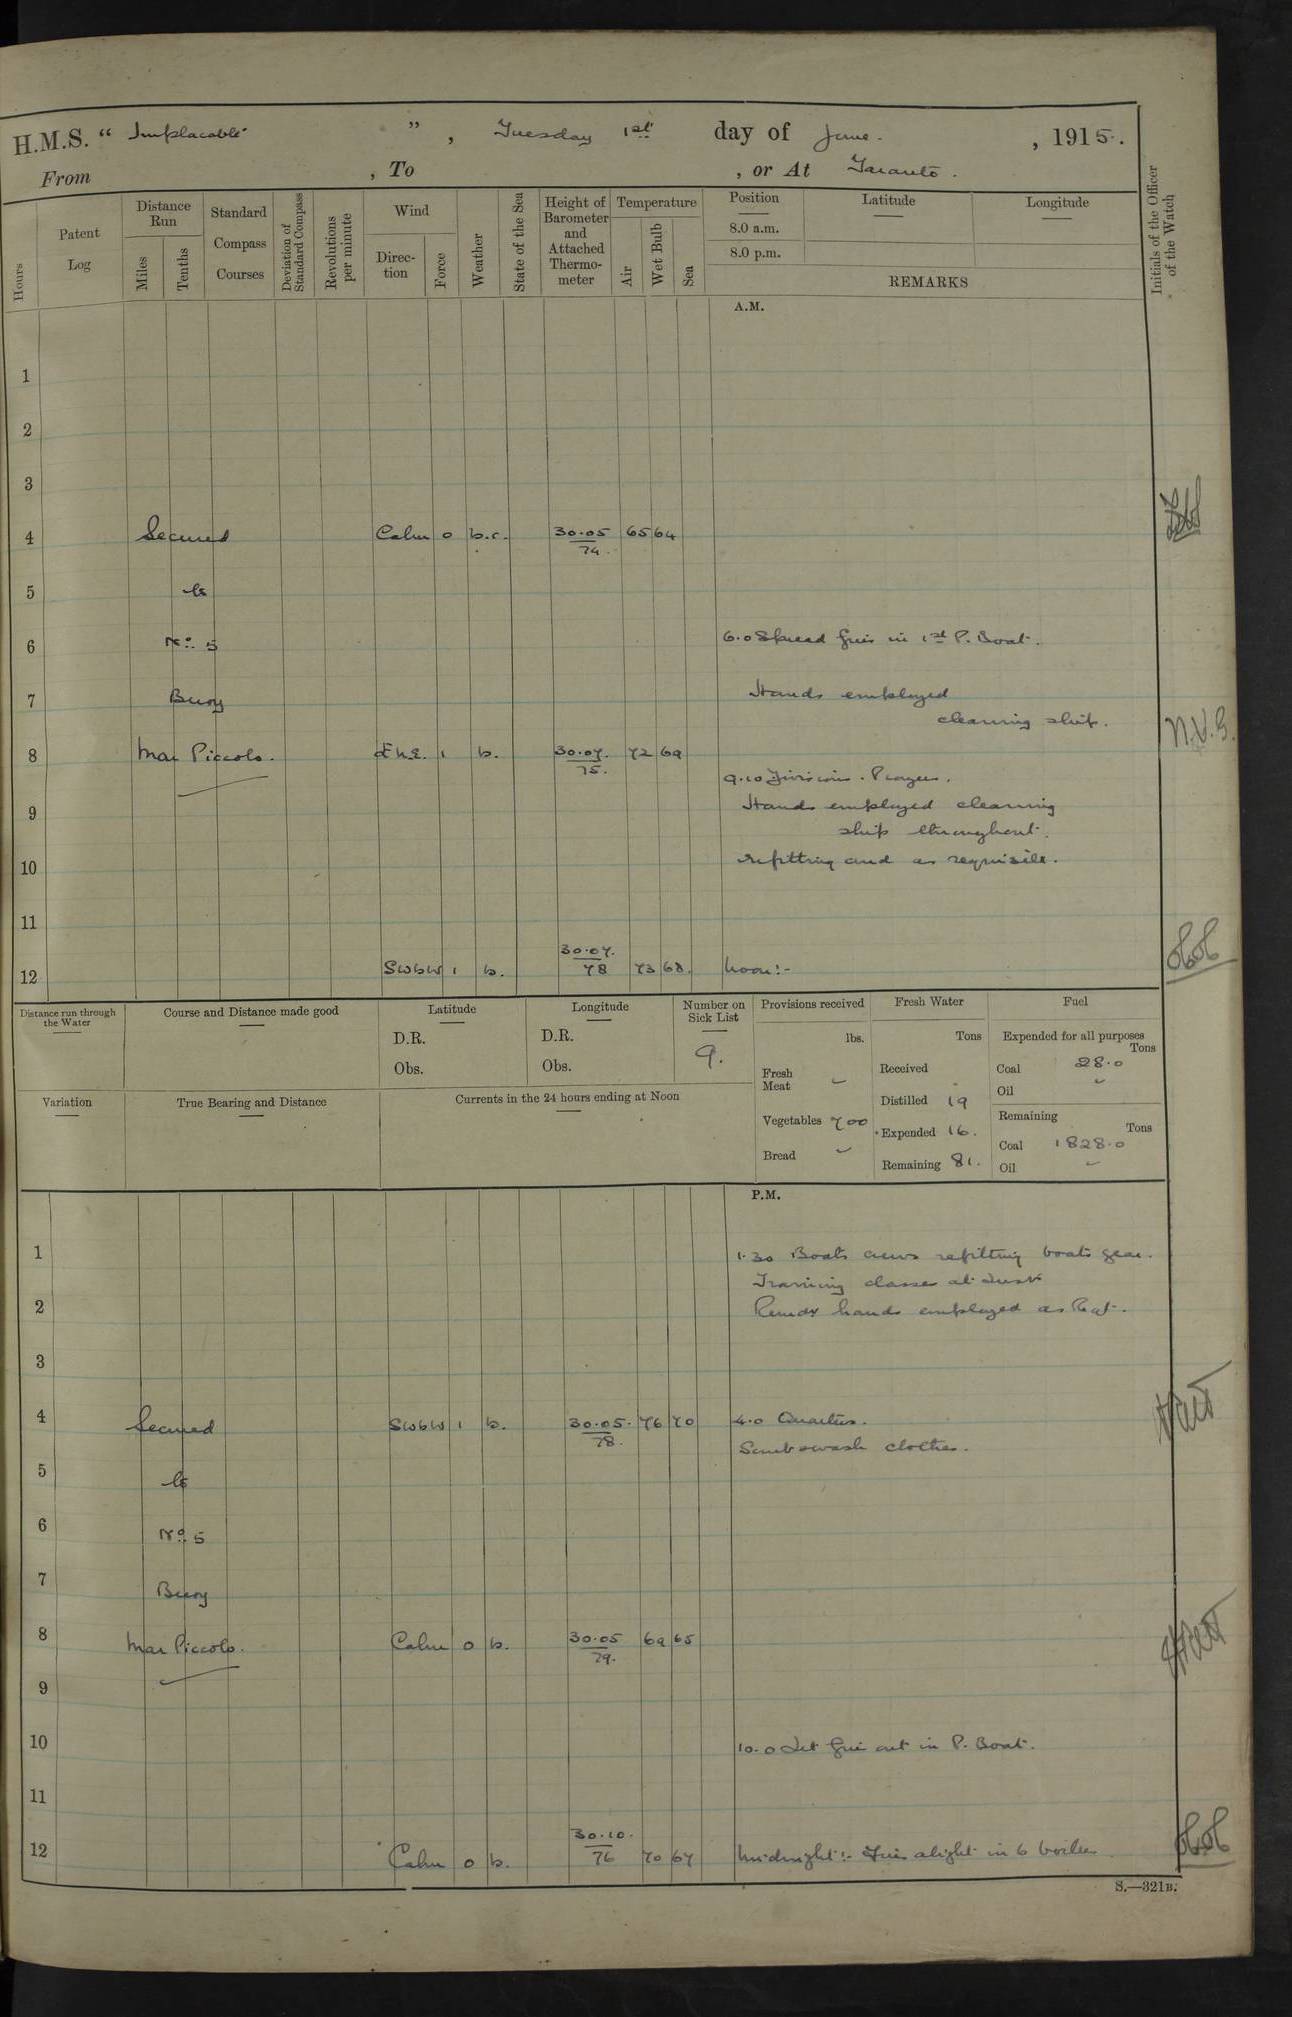 H.M.S. “ Implacable ” , Tuesday 1st day of June. , 1915.
From , To , or At Taranto.
Hours
Patent Log
Distance Run
Miles
Tenths
Standard Compass Courses
Deviation of Standard Compass
Revolutions per minute
Wind
Direction
Force
Weather
State of the Sea
Height of Barometer and Attached Thermometer
Temperature
Air
Wet Bulb
Sea
Position
8.0 a.m.
8.0 p.m.
Latitude
Longitude
REMARKS
Initials of the Officer of the Watch
A.M.
1
2
3
4 Secured Calm 0 b.c. 30.05 65 64
74.
5 to
6 No. 5 6.0 Spread fires in 1st P. Boat.
7 Buoy Hands employed
cleaning ship.
8 Mar Piccolo. ENE. 1 b. 30.07. 72 69 N.V.G.
75.
9.10 Divisions. Prayers.
9 Hands employed cleaning
ship throughout.
10 refitting and as requisite.
11
30.07.
12 SWbW 1 b. 78 73 68. Noon:-
Distance run through the Water
Course and Distance made good
Latitude
D.R.
Obs.
Longitude
D.R.
Obs.
Number on Sick List
9.
Provisions received
lbs.
Fresh Meat -
Vegetables 700
Bread -
Fresh Water
Tons
Received
Distilled 19
Expended 16.
Remaining 81.
Fuel
Expended for all purposes
Tons
Coal 28.0
Oil -
Remaining
Tons
Coal 1828.0
Oil -
Variation
True Bearing and Distance
Currents in the 24 hours ending at Noon
P.M.
1 1.30 Boats crews refitting boats gear.
Training classes at Inst.
2 Remdr hands employed as Req.
3
4 Secured SWbW 1 b. 30.05. 76 70 4.0 Quarters.
78.
Scrub & wash clothes.
5 to
6 No. 5
7 Buoy
8 Mar Piccolo. Calm 0 b. 30.05 69 65
79.
9
10 10.0 Let fires out in P. Boat.
11
30.10.
12 Calm 0 b. 76 70 67 Midnight:- Fires alight in 6 boilers
S.—321B.